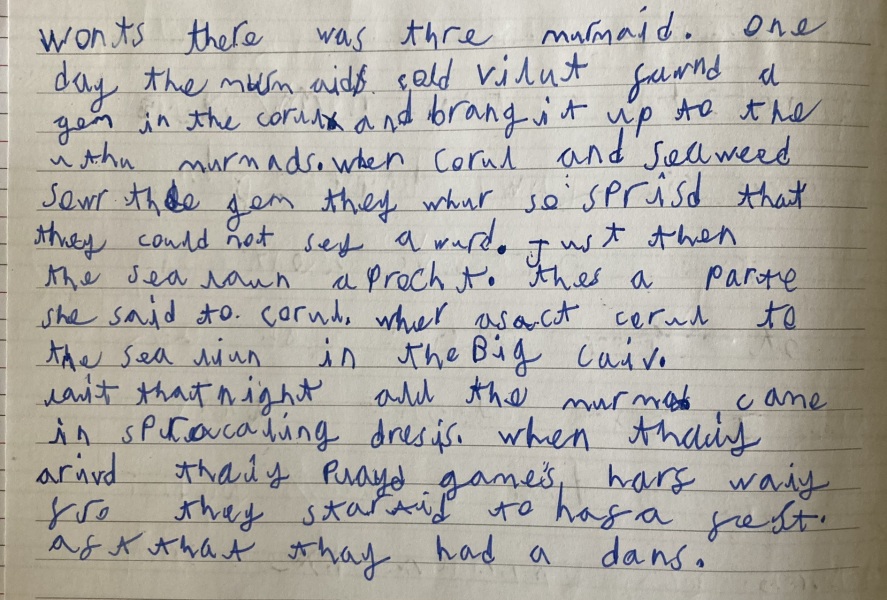 wonts there was thre murmaid. one
day the murmaids cald vilut fawnd a
gem in the corul and brang it up to the
uthu murmads. when corul and seaweed
sewr the gem they whur so sprisd that
they could not sey a wurd. Just then
the sea laun aprocht. thes a parte
she said to. corul. wher asact corul to
the sea liun in the Big caiv.
lait that night all the murmads came
in spracaling dresis. when thaiy
arivd thaiy Pluayd games, harf waiy
fro they startid to haf a fest.
aft that thay had a dans.